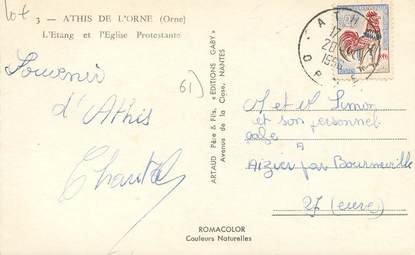 Lot
3 — ATHIS DE L'ORNE (Orne)
L'Etang et l'Eglise Protestante
Souvenir
d'Athis
Chantal
61)
ARTAUD Père & Fils, "EDITIONS GABY"
Avenue de la Close, NANTES
ATH
17
20
ORNE
M et Me Simon
et son personnel
à
Aizier par Bourneville
27 (eure)
ROMACOLOR
Couleurs Naturelles